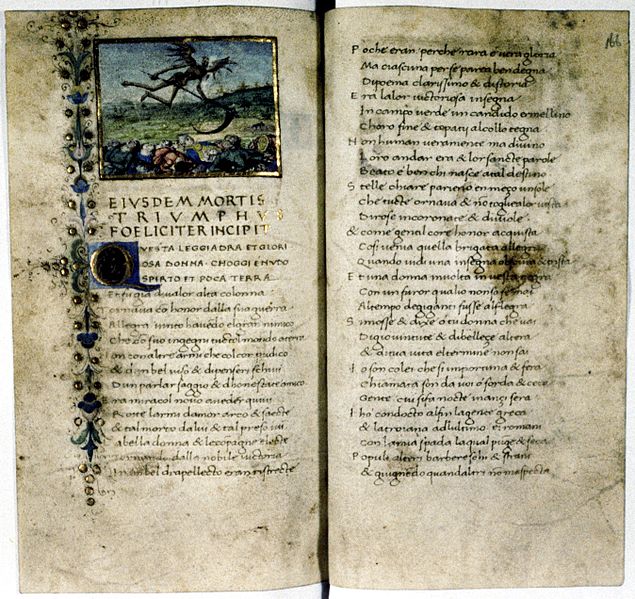 EIVSDEM MORTIS
TRIVMPHVS
FOELICITER INCIPIT
QVESTA LEGGIADRA ET GLORI
OSA DONNA · CHOGGI E NVDO
SPIRTO ET POCA TERRA
Et fu gia di valor alta colonna
Tornava co honor dalla sua guerra
Allegra vinto havedo el gran nimico
Che co suo ingegni tucto l mondo aterra
Non con altre armi che col cor pudico
& don bel viso & di pensieri schivi
Dun parlar saggio & dhonestate amico
Era miracol novo a veder quivi
Rotte larmi damor arco & saecte
& tal morto da lui & tal preso vivi
La bella donna & le copagne electe
Tornando dalla nobile victoria
In un bel drapellecto eran ristrecte
166
Poche eran perche rara e vera gloria
Ma ciascuna per se parea ben degna
Di poema clarissimo & distoria
Era la lor victoriosa insegna
In campo verde un candido ermellino
Choro fine & topatii al collo tegna
Non human veramente ma divino
Loro andar era & lor sancte parole
Beato e ben chi nasce a tal destino
Stelle chiare parieno in mezo un sole
Che tucte ornava & no toglea lor vista
Di rose incoronate & di viole
& come gental core honor acquista
Cosi venia quella brigata allegra
Quando vidi una insegna obscura & trista
Et una donna involta in vesta negra
Con un furor qual io non so se mai
Al tempo de giganti fusse a flegra
Si mosse & dixe o tu donna che vai
Di gioventute & di belleze altera
& di tua vita el termine non sai
Io son colei che si importuna & fera
Chiamata son da voi & sorda & ceca
Gente cui si fa nocte inanzi sera
Iho condocto al fin la gente greca
& la troiana ad lultimo e romani
Con la mia spada la qual puge & seca
Populi alteri barbareschi & strani
& giugnedo quandaltri no maspecta